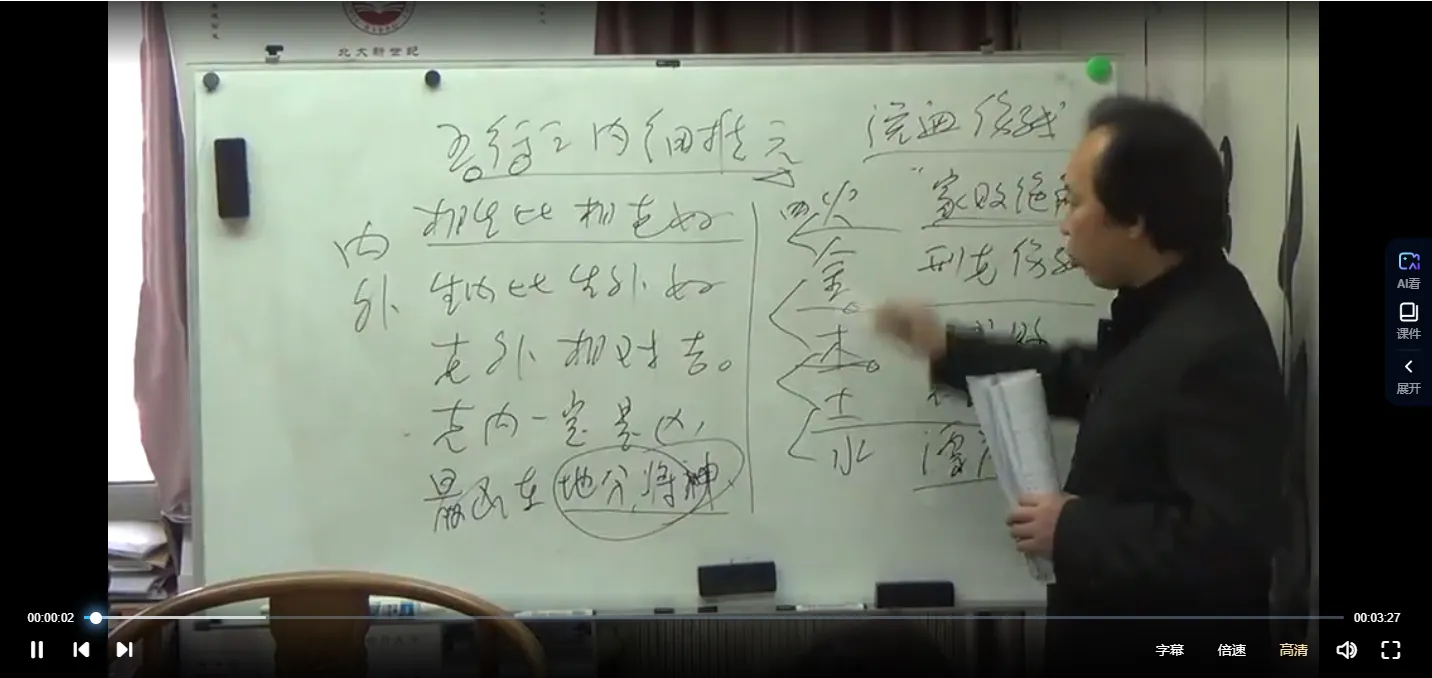 北大新世纪
五行之内细推元
流血伤残
相生比相克好
四火
"家败绝
内
生内比生外好
金
刑克伤
外
克外相对吉。
木
克内一定是凶,
土
最凶在地分将神
水
AI看
课件
展开
00:00:02
00:03:27
字幕
倍速
高清